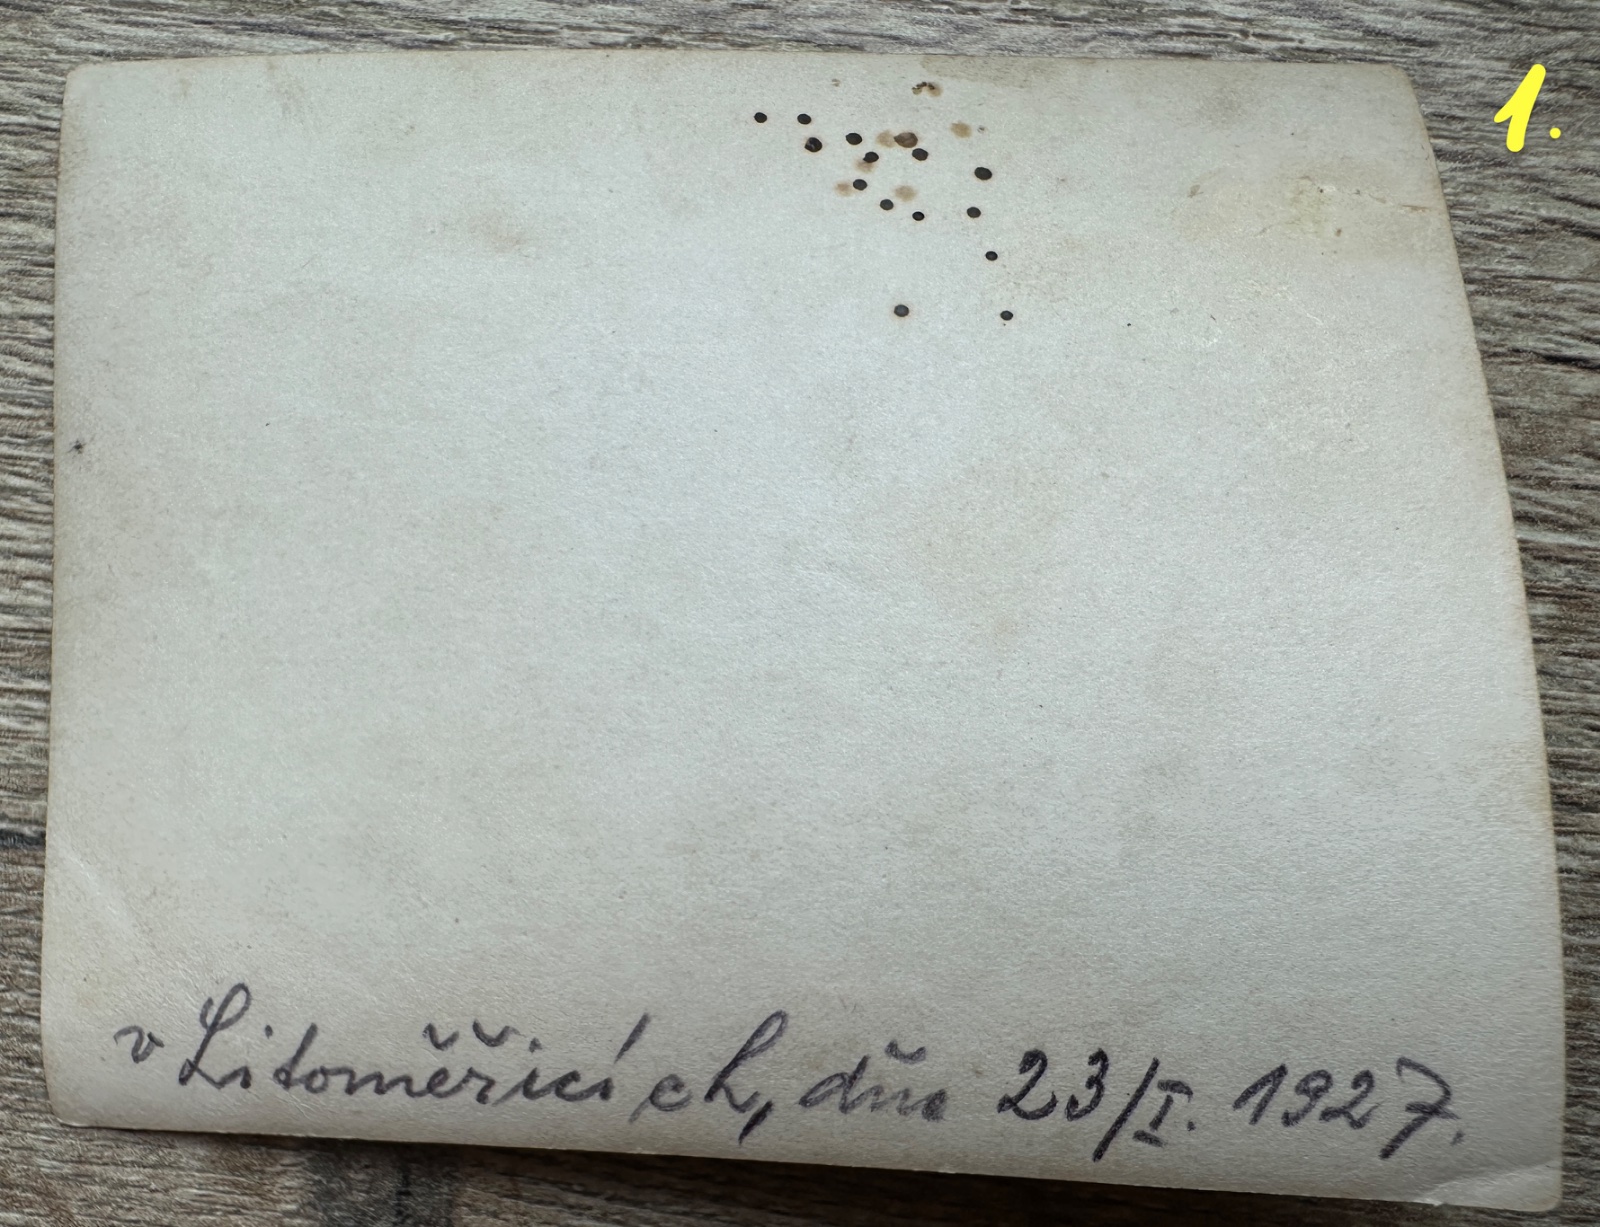 1.
v Litoměřicích, dňe 23/I. 1927.